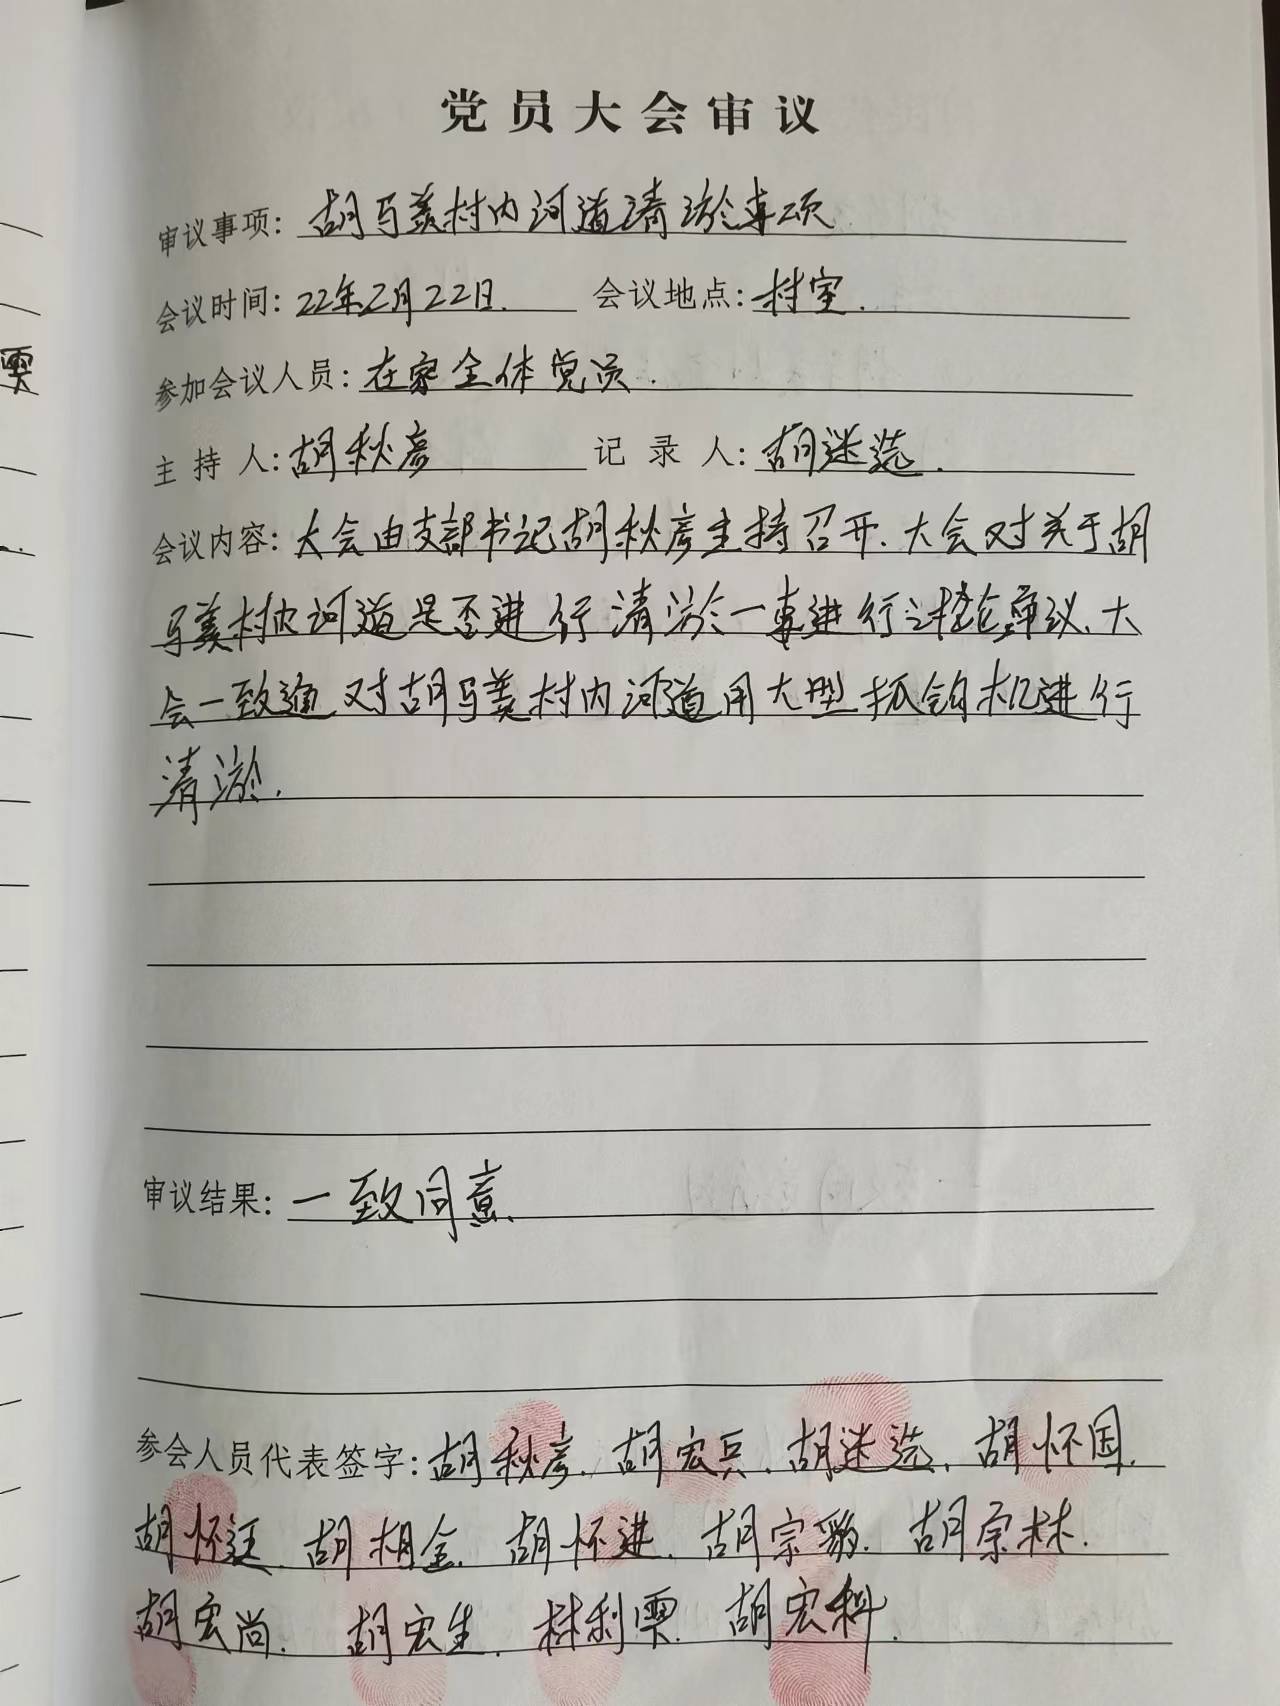 党员大会审议
审议事项: 胡马美村内河道清淤事项
会议时间: 22年2月22日. 会议地点: 村室.
参加会议人员: 在家全体党员.
主持人: 胡秋彦 记录人: 胡迷选.
会议内容: 大会由支部书记胡秋彦主持召开.大会对关于胡
马美村内河道是否进行清淤一事进行讨论审议、大
会一致通对胡马美村内河道用大型抓钩机进行
清淤.
审议结果: 一致同意.
参会人员代表签字: 胡秋彦、胡宏兵、胡迷选、胡怀国.
胡怀廷 胡相金. 胡怀进. 胡宗豹. 胡宗林.
胡宏尚. 胡宏生. 林利 胡宏科.